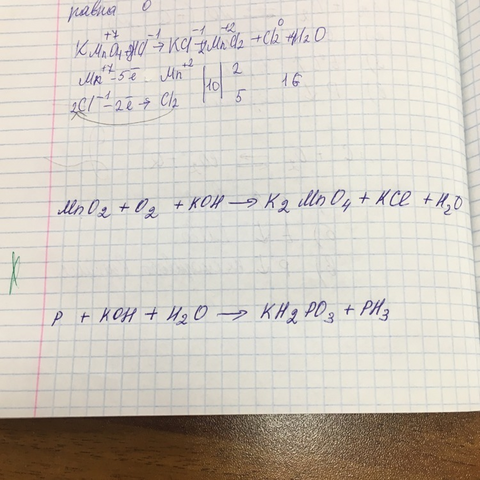 равна 0
KMnO₄⁺⁷ + HCl⁻¹ → KCl⁻¹ + MnCl₂⁺² + Cl₂⁰ + H₂O
Mn⁺⁷ - 5e Mn⁺² |10| 2 16
2Cl⁻¹ - 2e → Cl₂ 5
MnO₂ + O₂ + KOH → K₂MnO₄ + KCl + H₂O
P + KOH + H₂O → KH₂PO₃ + PH₃